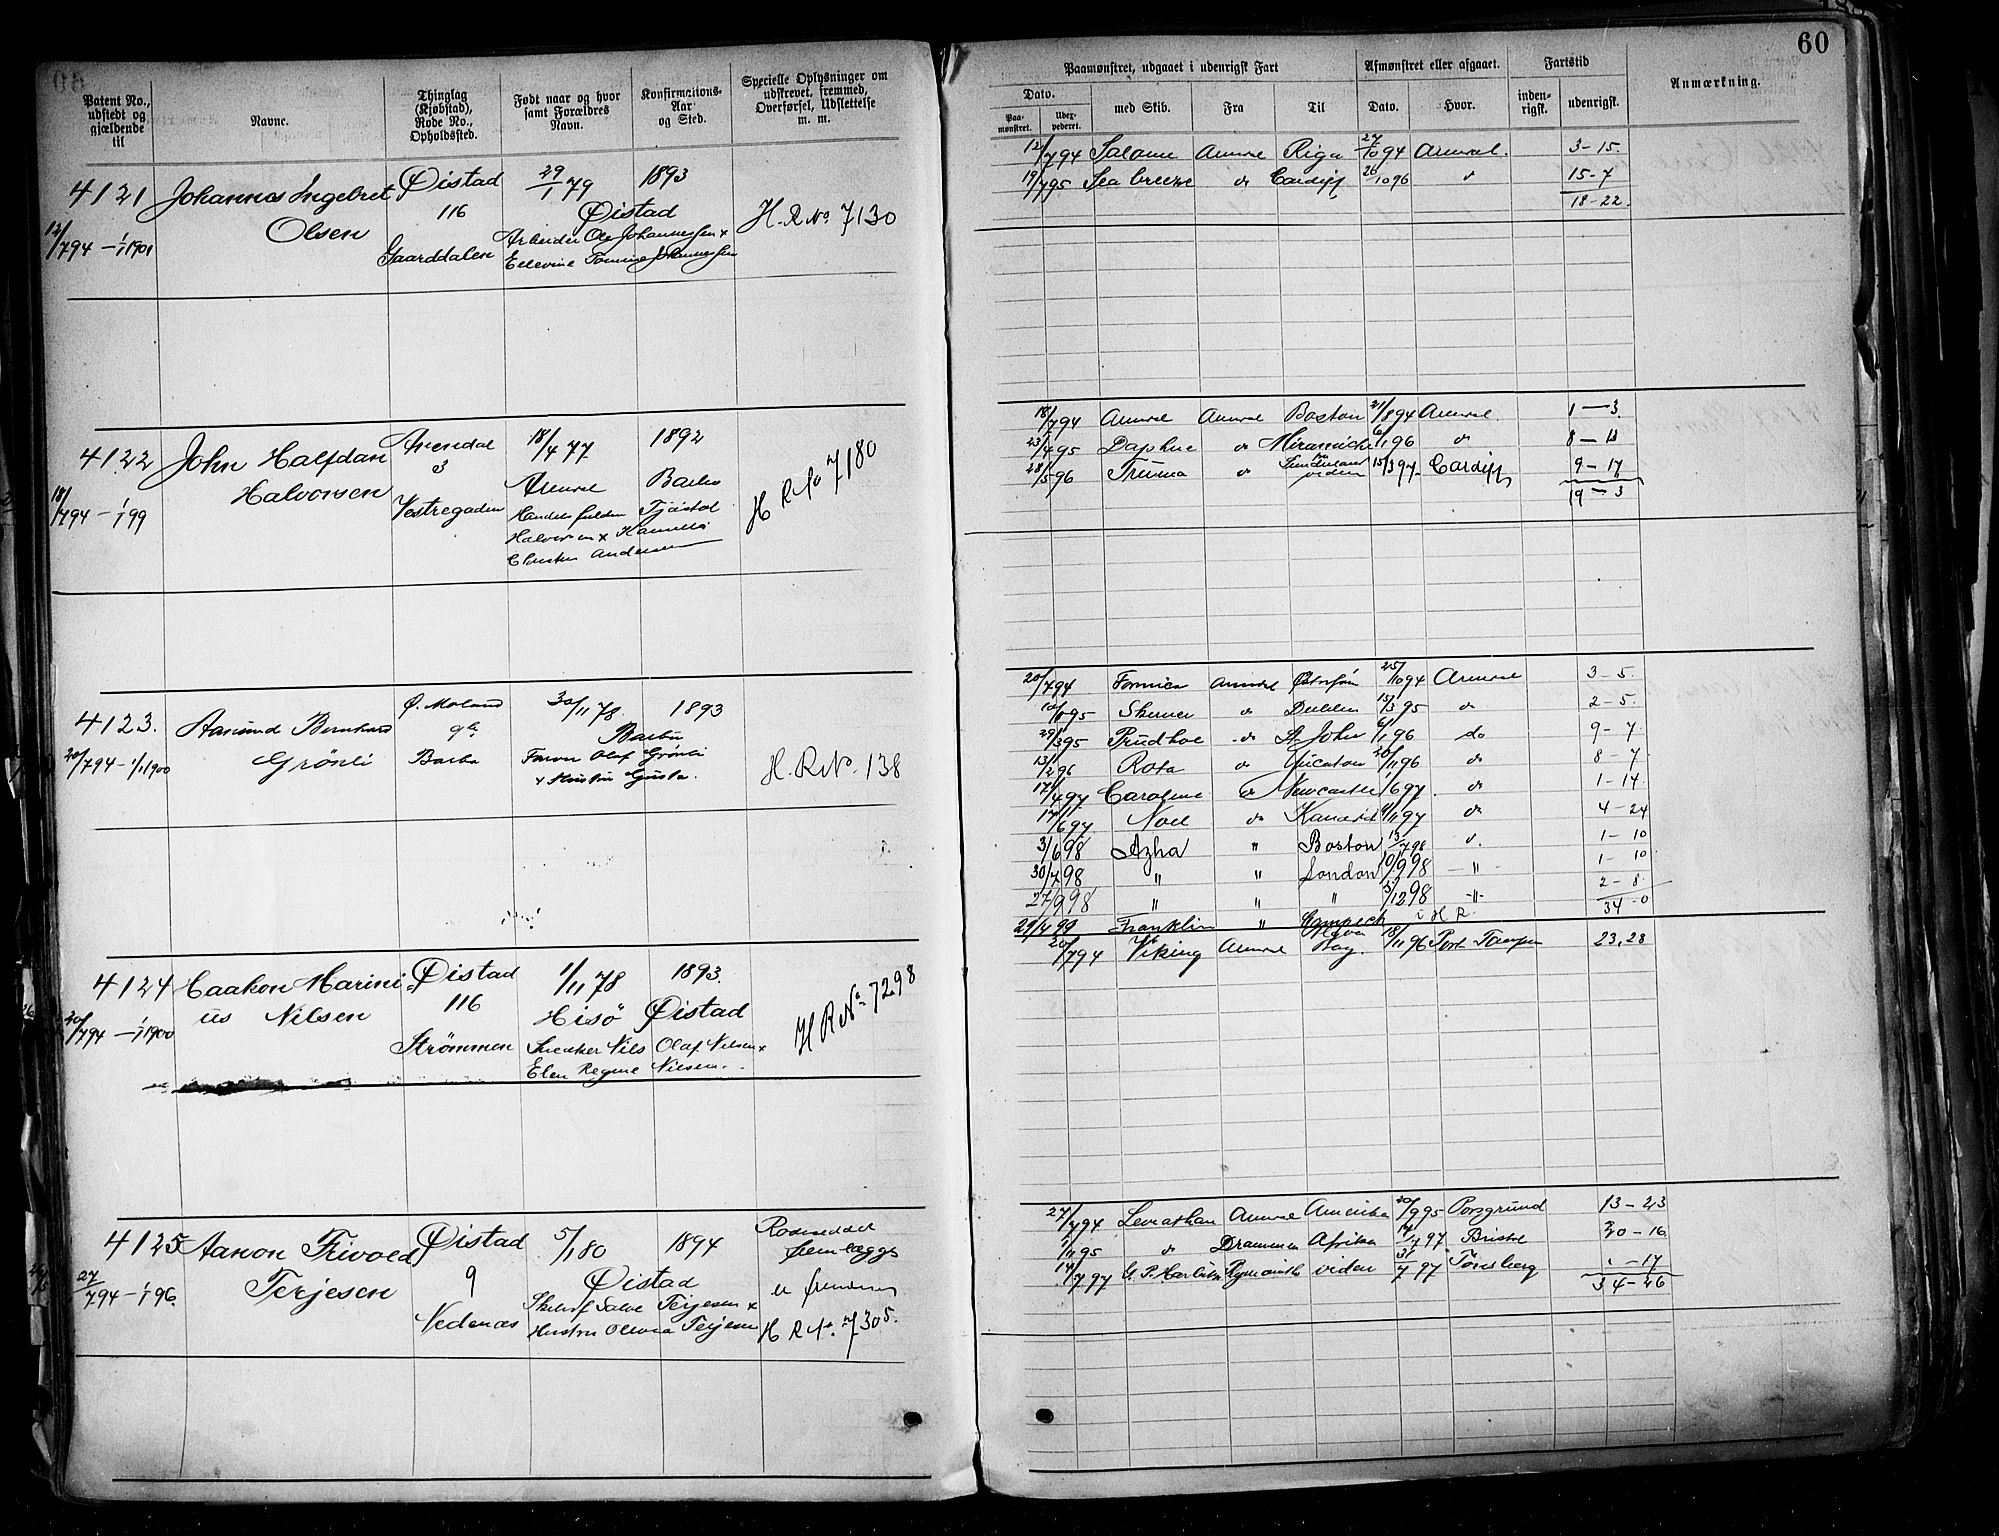 60
Patent No., udstedt og gjældende til
Navne.
Thinglag (Kjøbstad), Rode No., Opholdssted.
Født naar og hvor samt Forældres Navn.
Konfirmations-Aar og Sted.
Specielle Oplysninger om udskrevet, fremmed, Overførsel, Udslettelse m. m.
Paamønstret, udgaaet i udenrigsk Fart
Afmønstret eller afgaaet.
Fartstid
Anmærkning.
Dato.
Paa-mønstret.
med Skib.
Fra
Til
Dato.
Hvor.
inden-rigsk.
udenrigsk.
4121 Johannes Ingebret Øistad 29/1 79 1893
Olsen 116 Øistad H.R No 7130
12/7 94 – 1/1 1901 Gaarddalen Arbeider Ole Johannessen +
Johannessen
12/7 94 Salome Arendal Riga 27/10 94 Arendal. 3-15.
19/7 95 Sea breeze do Cardiff 26/10 96 do 15-7
18-22.
4122 John Halfdan Arendal 18/4 77 1892
Halvorsen 3 Arendal Barbo H R No 7180
18/7 94 – 1/1 99 Vestregaden Tjøstol
Halvorsen +
Andersen
18/7 94 Arendal Boston 21/8 94 Arendal 1-3.
23/4 95 Daphne do Miramichi 6/1 96 do
28/5 96 do viden 15/3 97 Cardiff 9-17
19-3
4123. Aasmund Bernhard Ø. Moland 30/11 78 1893
Grönli Barbo
20/7 94 – 1/1 1900 Barbo Olaf Grönli H. R No. 138
+
20/7 94 Arendal 25/10 94 Arendal 3-5.
do Dublin 95 do 2-5.
29/3 95 Prudhoe do St John 6/1 96 do 9-7
13/2 96 Rota do 20/11 96 do 8-7
17/4 97 Caroline do Newcastle 6 97. do 1-14
14/6 97 Noel do 11 97 do 4-24
3/6 98 Azha " Boston 13/7 98 do. 1-10
30/7 98 " " London 10/9 98 " 1-10
27/9 98 " " " 3/12 98 " 2-8
34-0
29/4 99 Franklin " Campech i H R.
4124 Haakon Marini- Øistad 1/11 78 1893.
us Nilsen 116 Hisö Øistad H R No. 7298
20/7 94 – 1/1 1900 Strömmen Snedker Nils Olaf Nilsen +
Elen Regine Nilsen.
20/7 94 Viking Arendal Bay. 18/11 96 Port Tampa 23,28
4125 Aanon Trivold Øistad 5/1 80 1894
Terjesen 9 Øistad
27/7 94 – 1/1 96. Nedenæs Salve Terjesen +
Hustru Terjesen H R No. 7305.
27/7 94 Leviathan Arendal Amerika 20/9 95 Porsgrund 13-23
11 95 do Drammen Afrika 7 97 Bristol 20-16
14/7 97 Plymouth viden 31/7 97 Tönsberg "-17
34-26